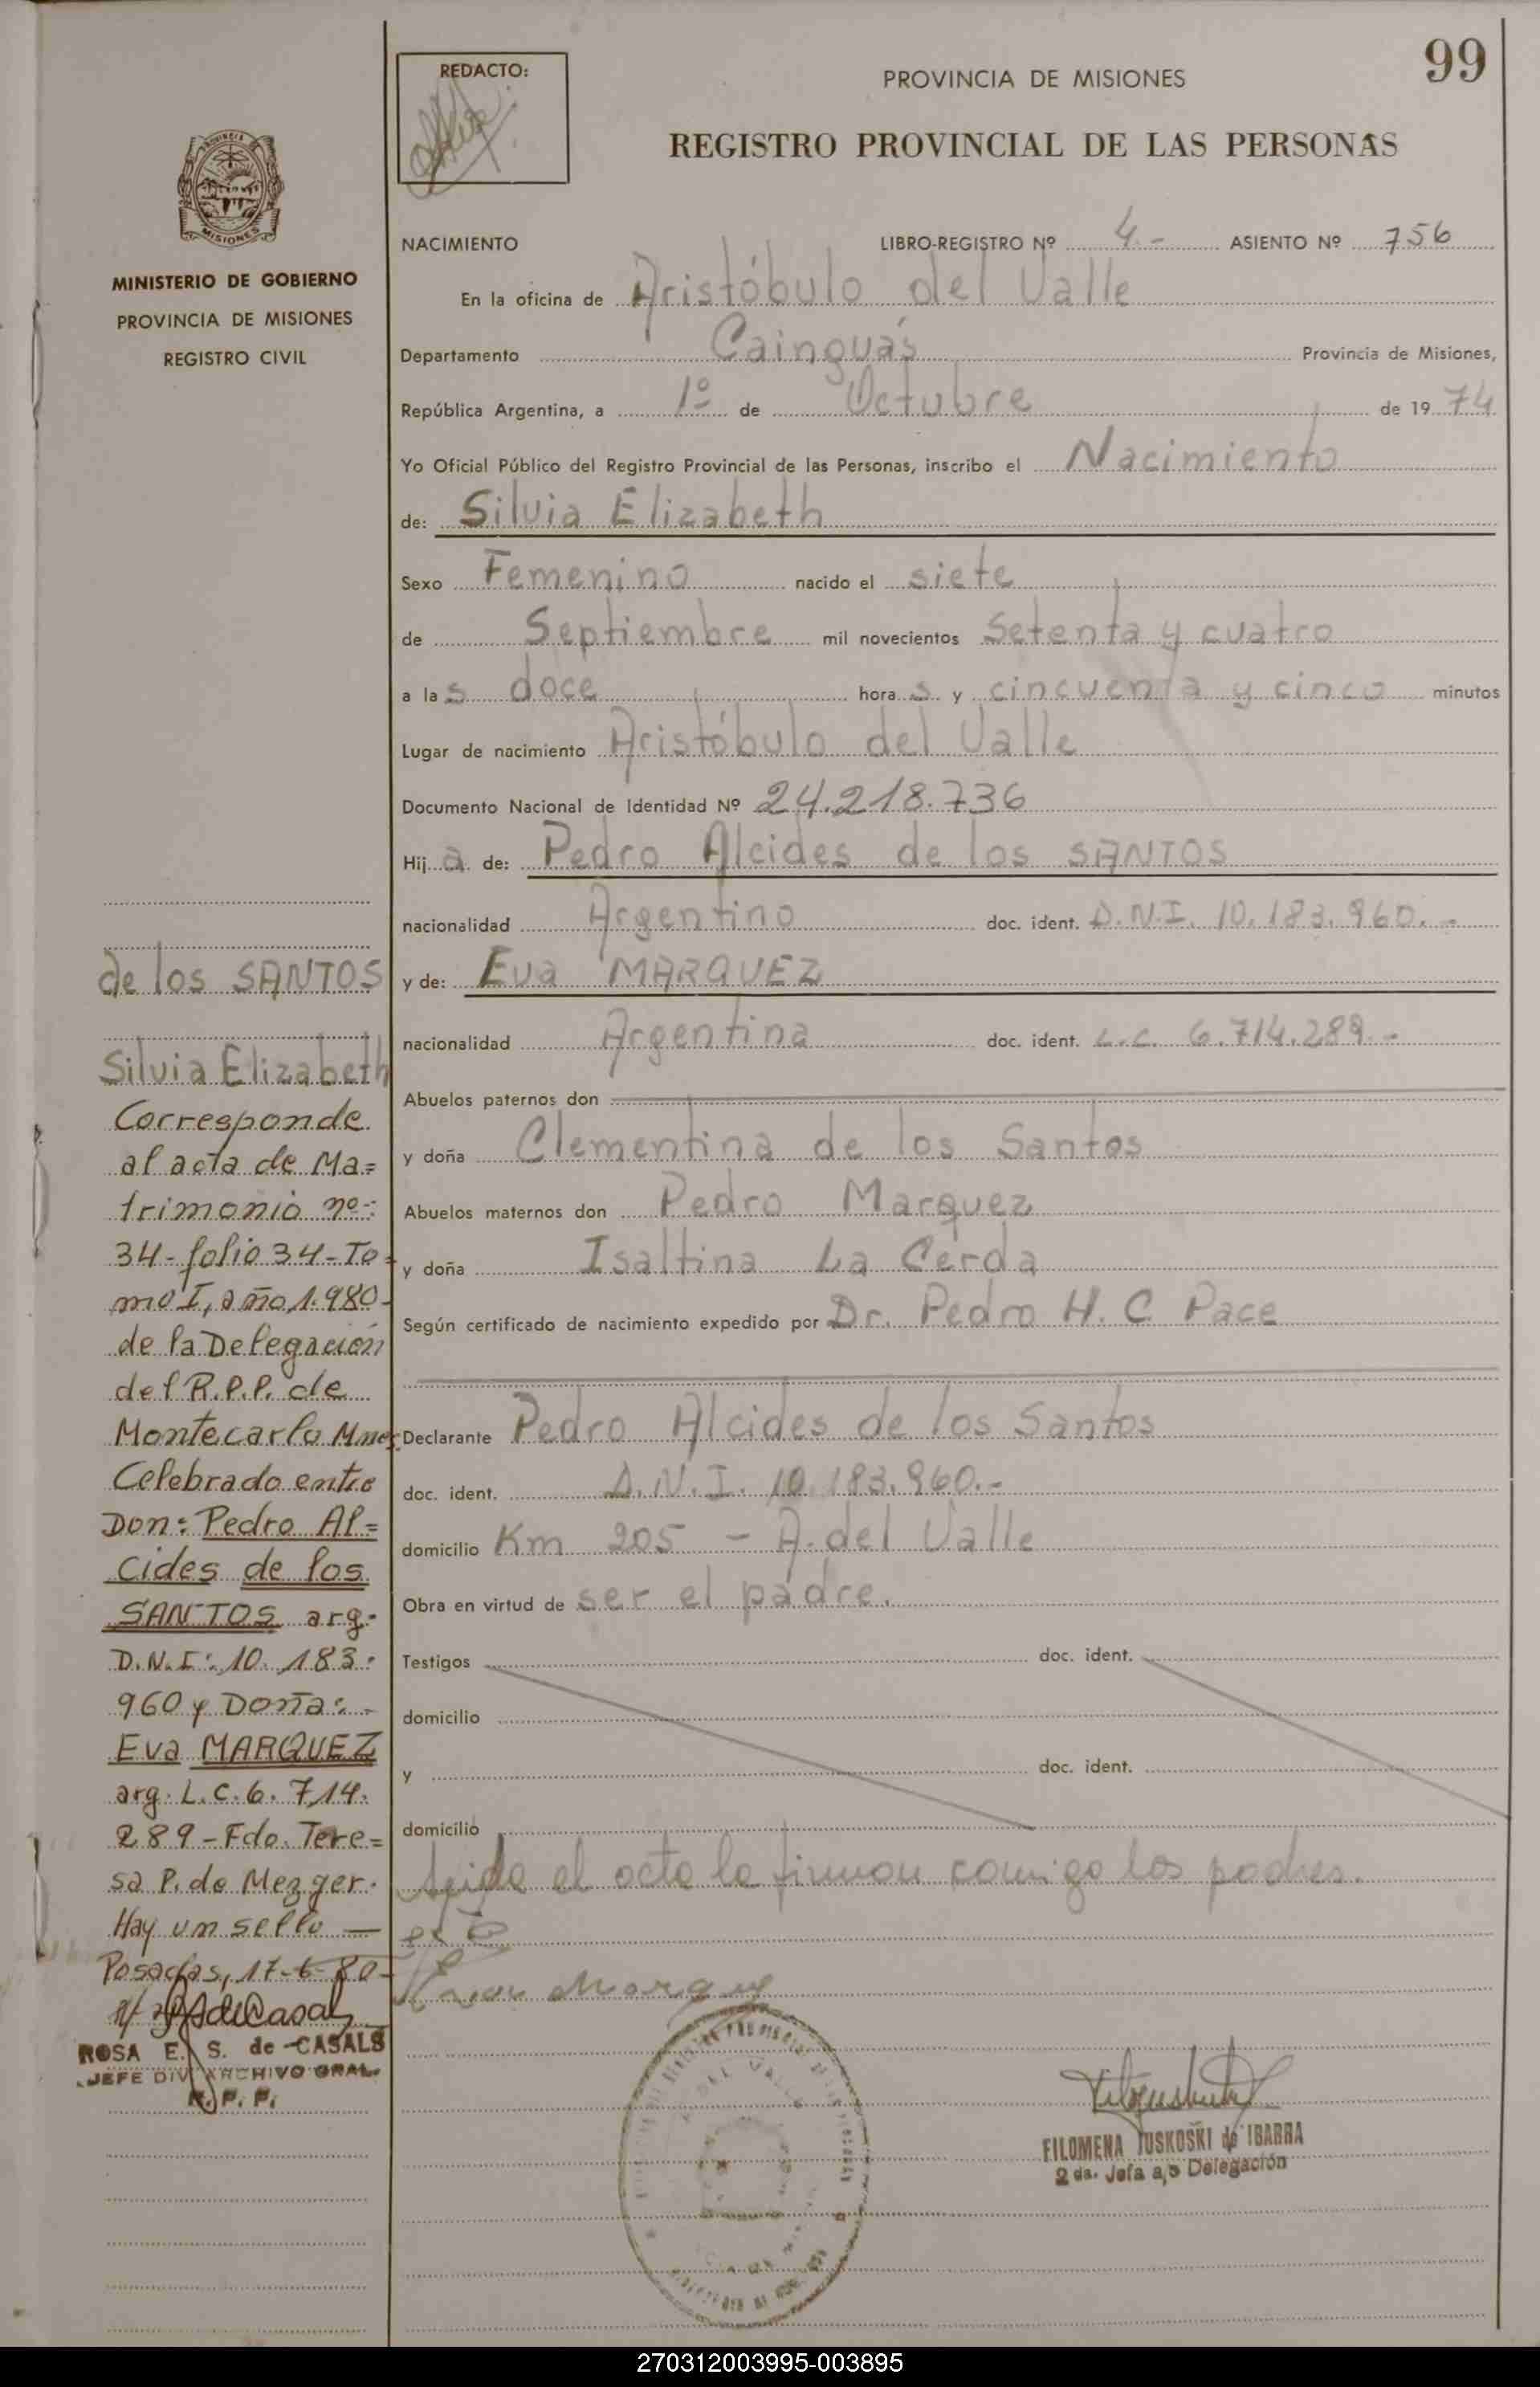 99
REDACTO:
PROVINCIA DE MISIONES
REGISTRO PROVINCIAL DE LAS PERSONAS
MISIONES
MINISTERIO DE GOBIERNO
PROVINCIA DE MISIONES
REGISTRO CIVIL
NACIMIENTO LIBRO-REGISTRO Nº 4.- ASIENTO Nº 756
En la oficina de Aristóbulo del Valle
Departamento Cainguás Provincia de Misiones,
República Argentina, a 1º de Octubre de 1974
Yo Oficial Público del Registro Provincial de las Personas, inscribo el Nacimiento
de: Silvia Elizabeth
Sexo Femenino nacido el siete
de Septiembre mil novecientos Setenta y cuatro
a las doce horas y cincuenta y cinco minutos
Lugar de nacimiento Aristóbulo del Valle
Documento Nacional de Identidad Nº 24.218.736
Hija de: Pedro Alcides de los SANTOS
nacionalidad Argentino doc. ident. D.N.I. 10.183.960.-
y de: Eva MARQUEZ
nacionalidad Argentina doc. ident. L.C. 6.714.289.-
Abuelos paternos don
y doña Clementina de los Santos
Abuelos maternos don Pedro Marquez
y doña Isaltina La Cerda
Según certificado de nacimiento expedido por Dr. Pedro H. C Pace
Declarante Pedro Alcides de los Santos
doc. ident. D.N.I. 10.183.960.-
domicilio Km 205 - A. del Valle
Obra en virtud de ser el padre.
Testigos doc. ident.
domicilio
y doc. ident.
domicilio
el acta la firman conmigo los padres.
Eva Marquez
FILOMENA TUSKOSKI de IBARRA
2 da. Jefa a/c Delegación
de los SANTOS
Silvia Elizabeth
Corresponde
al acta de Ma=
trimonio nº:
34-folio 34-To=
mo I, año 1.980-
de la Delegación
del R.P.P. de
Montecarlo Mnes.
Celebrado entre
Don: Pedro Al=
cides de los
SANTOS arg.
D.N.I: 10.183.
960 y Doña:-
Eva MARQUEZ
arg. L.C. 6.714.
289-Fdo. Tere=
sa P. de Mezger.
Hay un sello —
Posadas, 17-6-80-
ROSA E. S. de CASALS
JEFE DIV ARCHIVO GRAL.
R. P. P.
270312003995-003895